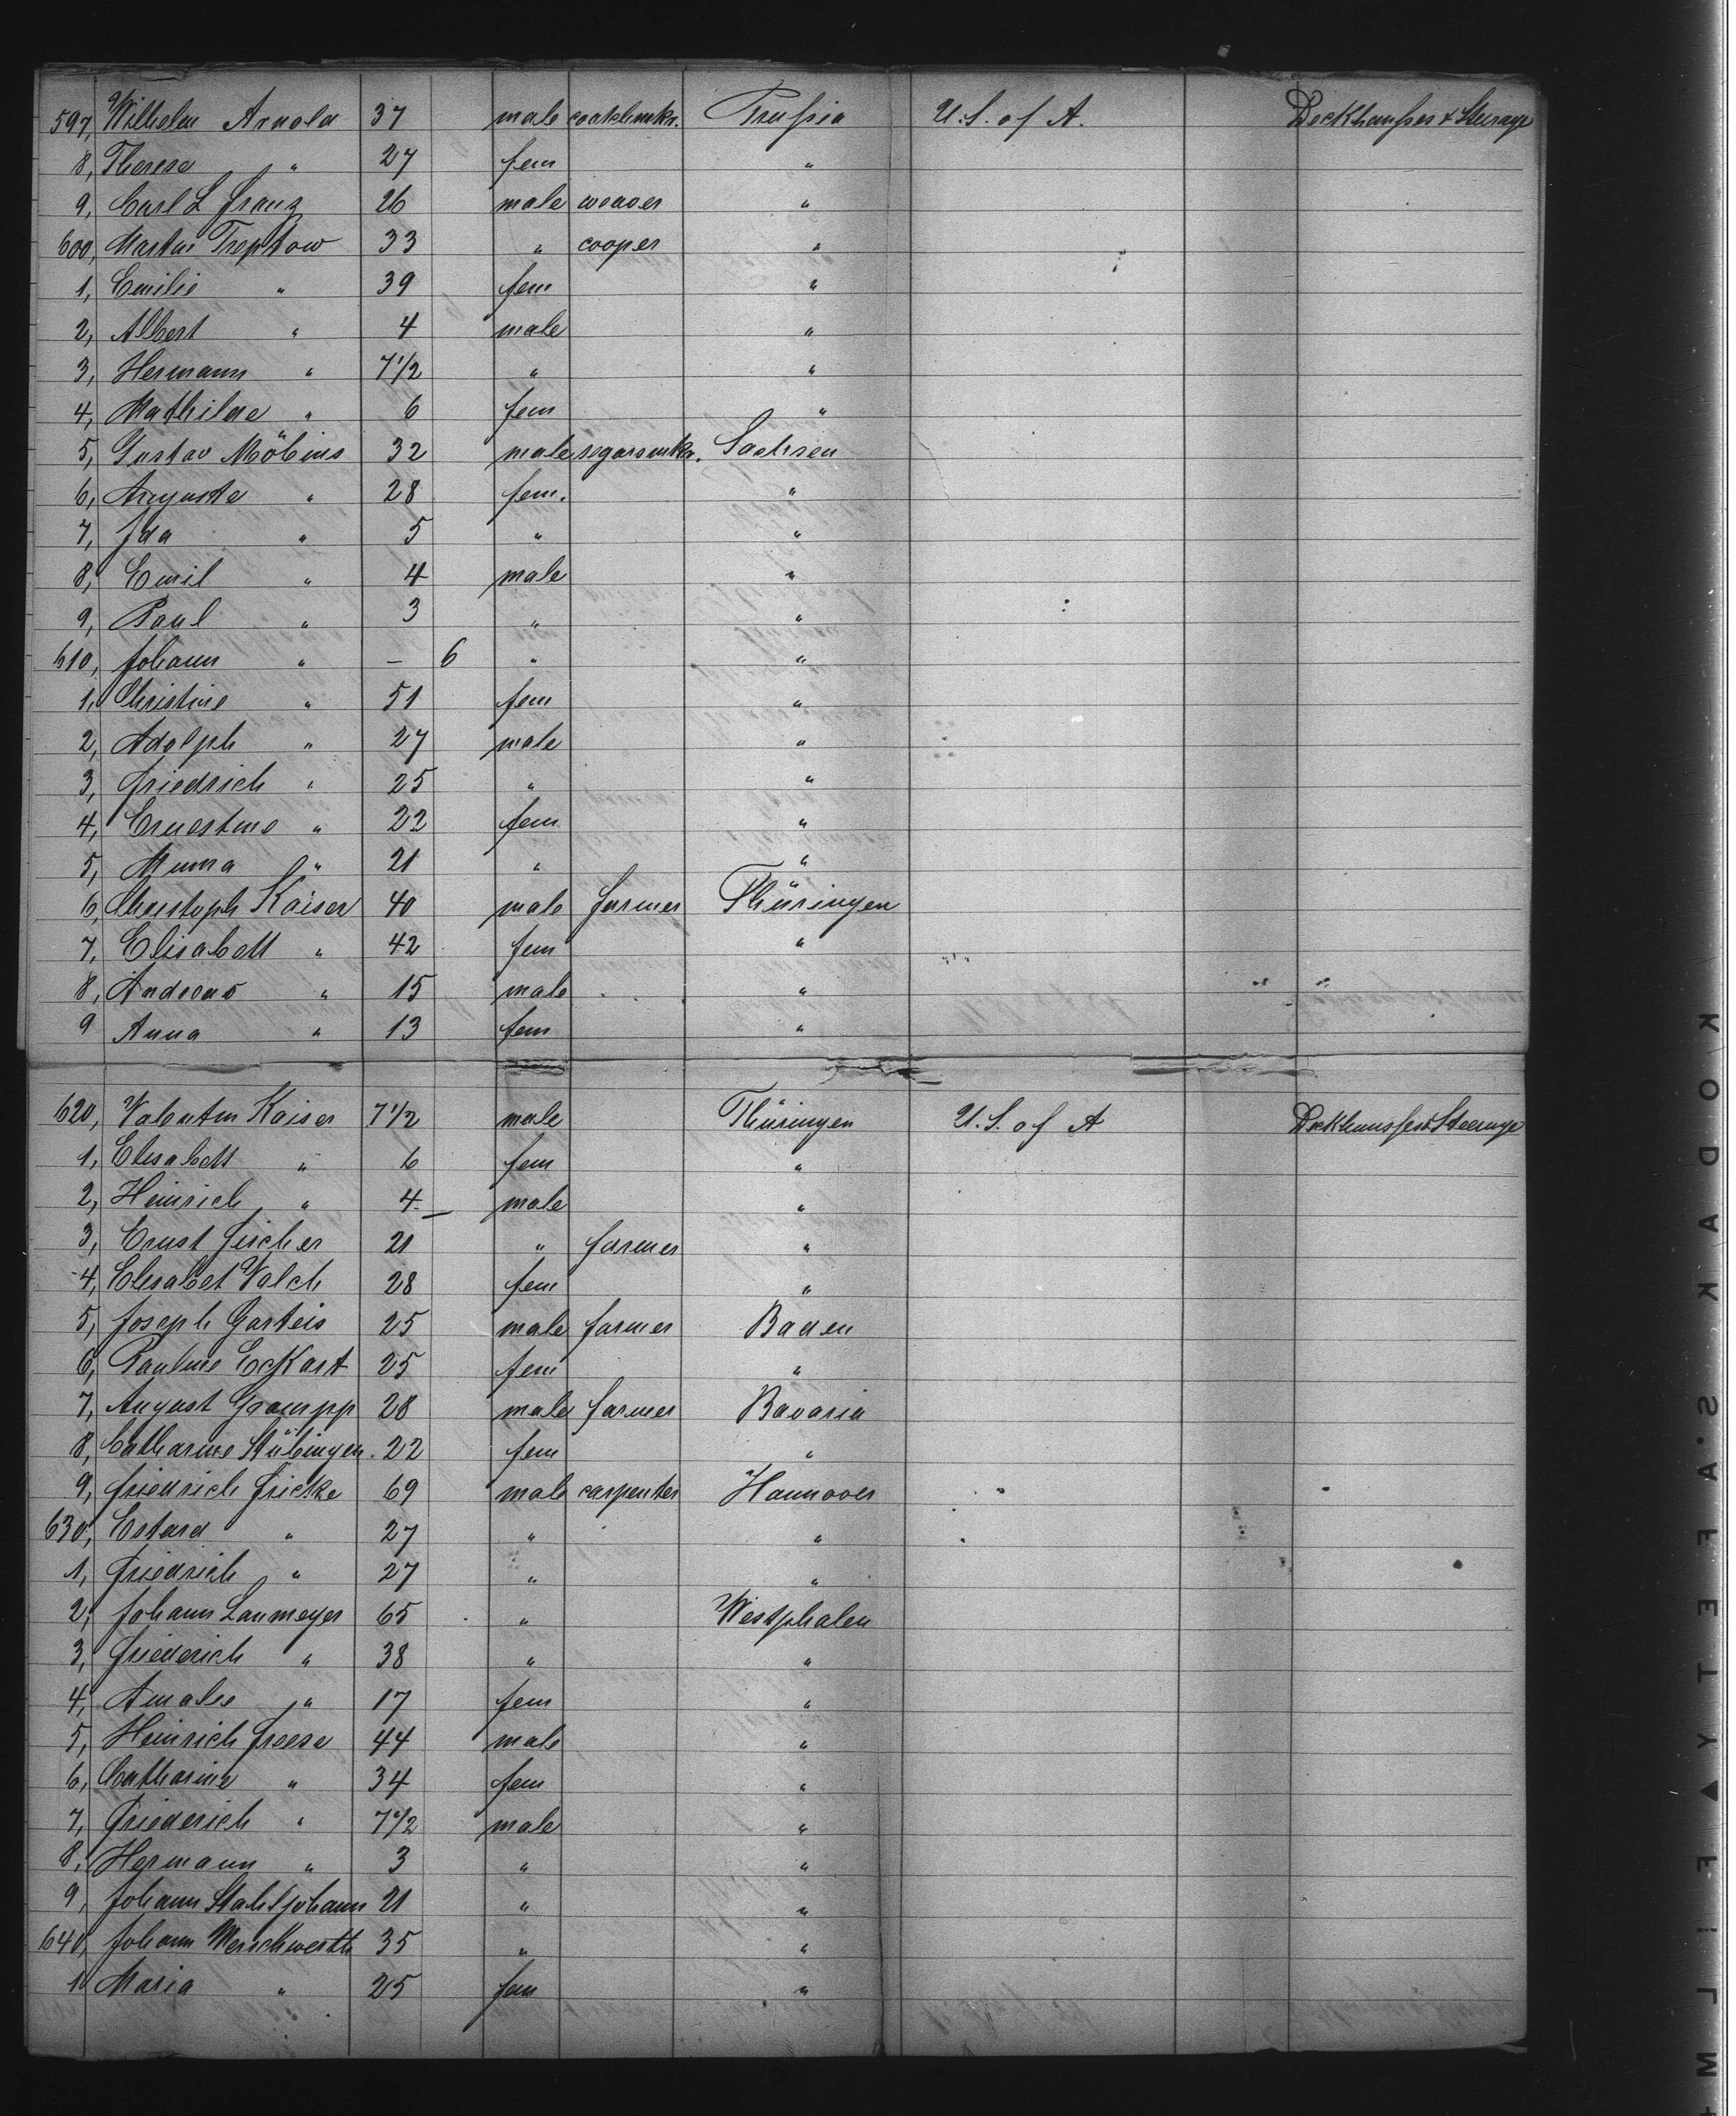 597, Wilhelm Arnold 37 male Prußia U. S. of A. Deckhauses & Steerage
8, Therese " 27 fem "
9, Carl L Franz 26 male weaver "
600, Martin Treptow 33 " cooper "
1, Emilie " 39 fem "
2, Albert " 4 male "
3, Hermann " 7 1/2 " "
4, Mathilde " 6 fem "
5, Gustav Möbius 32 male segarsmkr. Sachsen
6, Auguste " 28 fem. "
7, Ida " 5 " "
8, Emil " 4 male "
9, Paul " 3 " "
610, Johann " – 6 " "
1, Christine " 51 fem "
2, Adolph " 27 male "
3, Friedrich " 25 " "
4, Ernestine " 22 fem "
5, " 21 " "
6, Christoph Kaiser 40 male farmer Thüringen
7, Elisabett " 42 fem "
8, Andreas " 15 male "
9 Anna " 13 fem "
620, Valentin Kaiser 7 1/2 male Thüringen U. S. of A Deckhauses & Steerage
1, Elisabett " 6 fem "
2, Heinrich " 4 male "
3, Ernst Fischer 21 " farmer "
4, Elisabet Valch 28 fem "
5, Joseph Garteis 25 male farmer Baden
6, Pauline Eckart 25 fem "
7, August Grampp 28 male farmer Bavaria
8, Catharine Stübingen. 22 fem "
9, Friedrich Fricke 69 male carpenter Hannover
630, " 27 " "
1, Friedrich " 27 " "
2, Johann Laumeyer 65 " Westphalen
3, Friederich " 38 " "
4, Amalie " 17 fem "
5, Heinrich Freese 44 male "
6, Catharine " 34 fem "
7, Friederich " 7 1/2 male "
8, Hermann " 3 " "
9, Johann Stahljohann 21 " "
640, Johann 35 " "
1 Maria " 25 fem "
KODAK · S · A F E T Y ▲ F I L M +